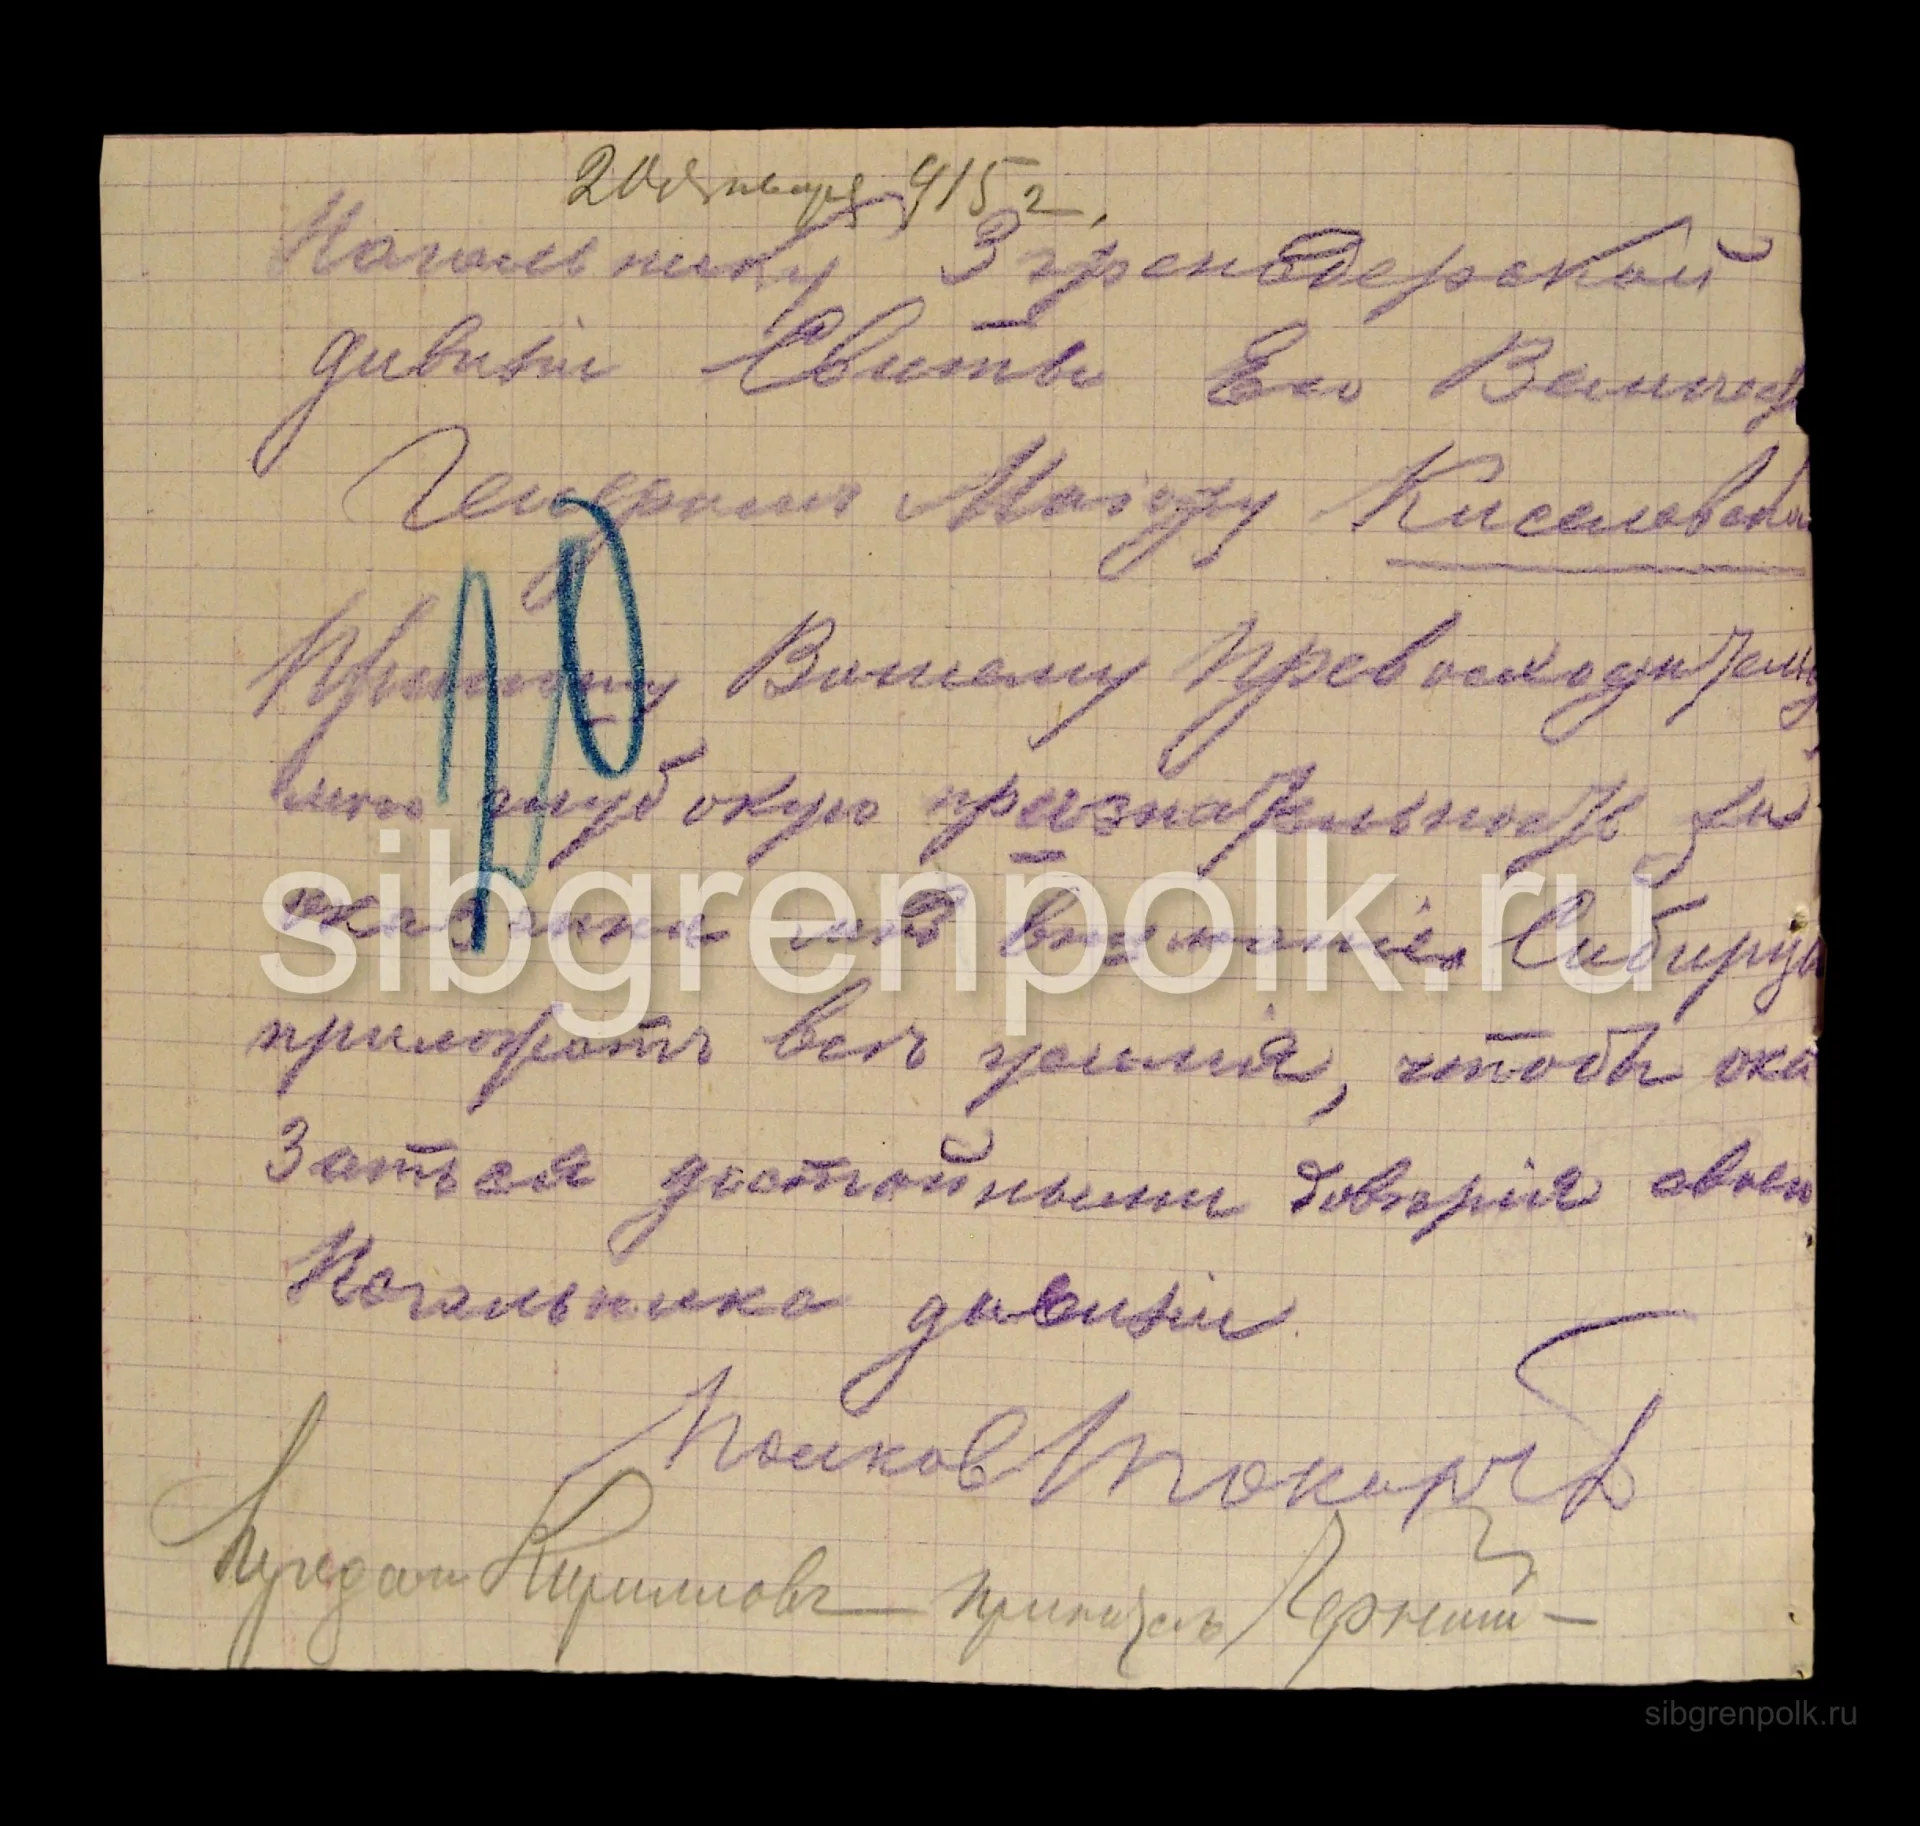 20 января 915 г.
Начальнику 3 гренадерской
дивизіи Свиты Его Величес
Генералъ Маіору Киселевско
Приношу Вашему Превосходительс
мою глубокую признательность за
оказанное мнѣ вниманіе. Сибирцы
приложатъ всѣ усилія, чтобы ока
заться достойными довѣрія своего
Начальника дивизіи
20
Полков Токарев
Передалъ Кирилловъ принялъ Черный —
sibgrenpolk.ru
sibgrenpolk.ru